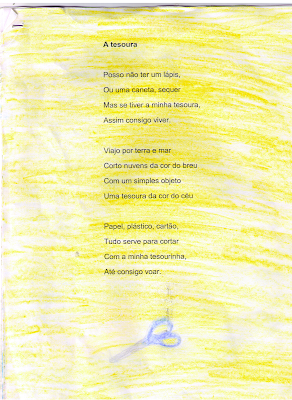 A tesoura
Posso não ter um lápis,
Ou uma caneta, sequer
Mas se tiver a minha tesoura,
Assim consigo viver.
Viajo por terra e mar
Corto nuvens da cor do breu
Com um simples objeto
Uma tesoura da cor do céu
Papel, plástico, cartão,
Tudo serve para cortar
Com a minha tesourinha,
Até consigo voar.